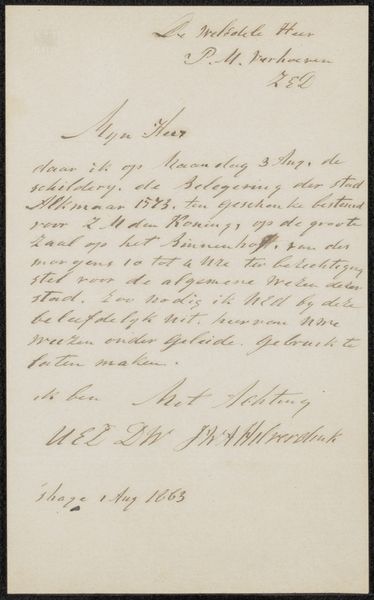 De weledele Heer
P. M. Verhoeven
ZED
Myn Heer
daar ik op Maandag 3 Aug. de
schildery. de Belegering der stad
Alkmaar 1573. ten geschenke bestemd
voor Z M den Koning, op de groote
Zaal op het Binnenhoff, van des
morgens 10 tot 4 ure ter bezichtiging
stel voor de algemene wezen dezer
stad. Zoo nodig ik UED by deze
beleefdelyk uit. hiervan uwe
weezen onder geleide. gebruik te
laten maken.
ik ben Met Achting
UED DW J W A Hilverdink
s'hage 1 Aug 1863